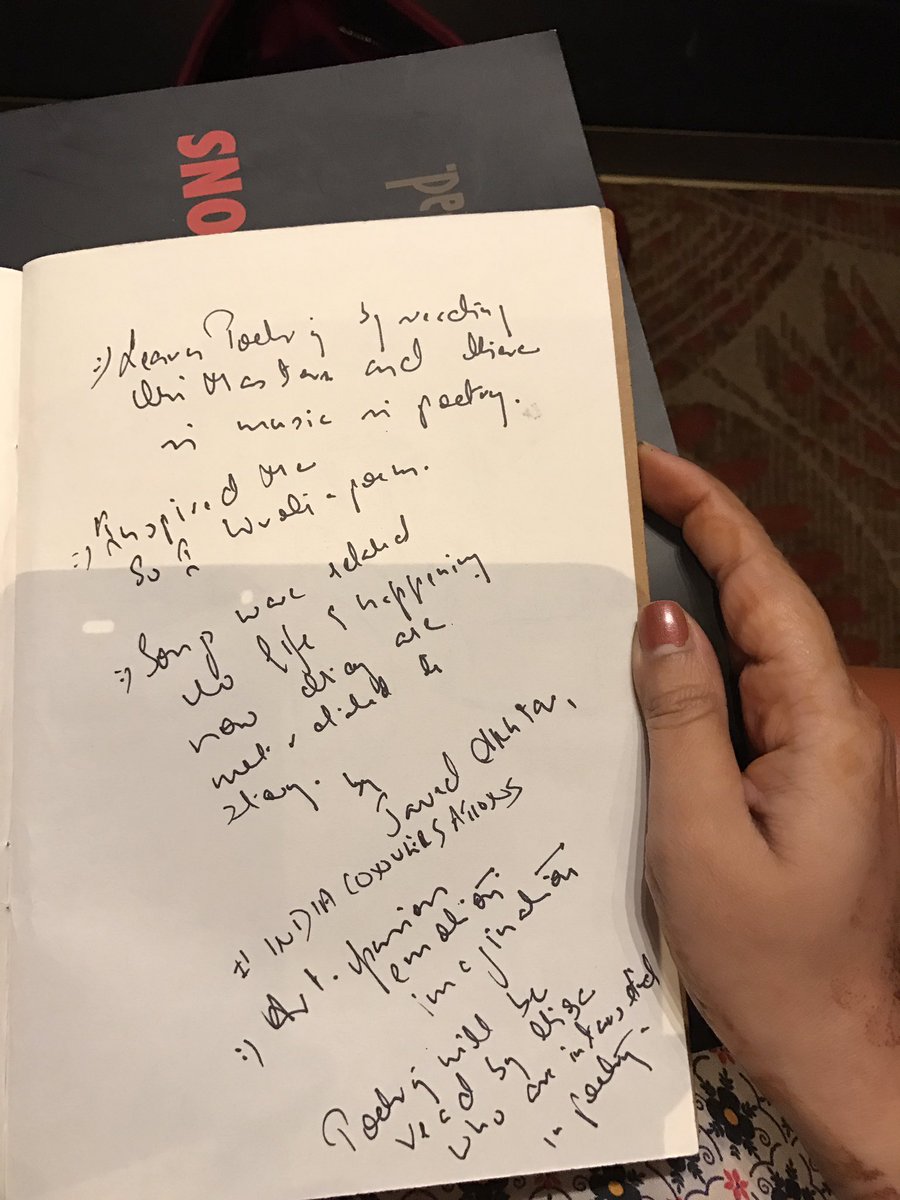 SNO
pe
:) Learn Poetry by reading
the Masters and there
is music in poetry.
:) Inspired me
So I wrote a poem.
:) Songs were related
to life & happening
now they are
related to
story. by
Javed Akhtar,
# INDIA
:) Art. passion
emotion
imagination
Poetry will be
read by those
who are interested
in poetry.